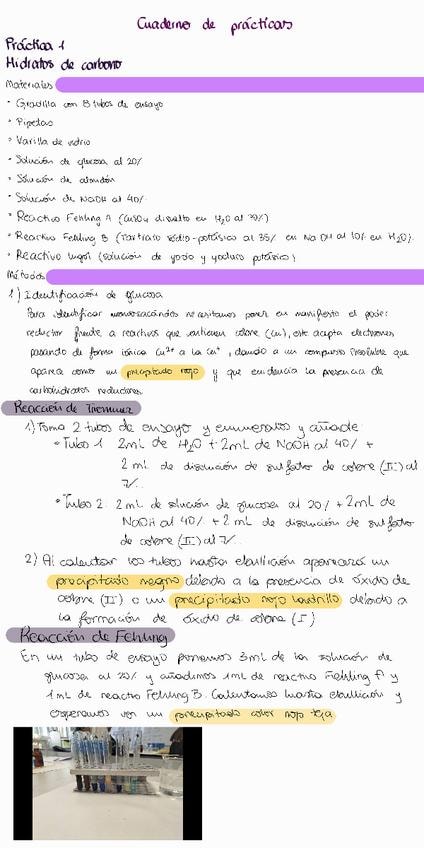 Cuaderno de prácticas
Práctica 1
Hidratos de carbono
Materiales
· Gradilla con 8 tubos de ensayo
· Pipetas
· Varilla de vidrio
· Solución de glucosa al 20%
· Solución de almidón
· Solución de NaOH al 40%
· Reactivo Fehling A (CuSO4 disuelto en H2O al 3%)
· Reactivo Fehling B (Tartrato sódio-potásico al 35% en NaOH al 10% en H2O).
· Reactivo lugol (solución de yodo y yoduro potásico)
Métodos
1) Identificación de glucosa
Para identificar monosacáridos necesitamos poner en manifiesto el poder
reductor frente a reactivos que contienen cobre (Cu), este acepta electrones
pasando de forma iónica Cu2+ a la Cu+, dando a un compuesto insoluble que
aparece como un precipitado rojo y que evidencia la presencia de
carbohidratos reductores
Reacción de Trommer
1) Toma 2 tubos de ensayo y enumeralos y añade
· Tubo 1 2mL de H2O + 2mL de NaOH al 40% +
2 mL de disolución de sulfato de cobre (II) al
7%.
· Tubo 2. 2 mL de solución de glucosa al 20% + 2mL de
NaOH al 40% + 2 mL de disolución de sulfato
de cobre (II) al 7%.
2) Al calentar los tubos hasta ebullición aparecerá un
precipitado negro debido a la presencia de óxido de
cobre (II) o un precipitado rojo ladrillo debido a
la formación de óxido de cobre (I)
Reacción de Fehling
En un tubo de ensayo ponemos 3mL de la solución de
glucosa al 20% y añadimos 1mL de reactivo Fehling A y
1mL de reactivo Fehling B. Calentamos hasta ebullición y
esperamos ver un precipitado color rojo teja